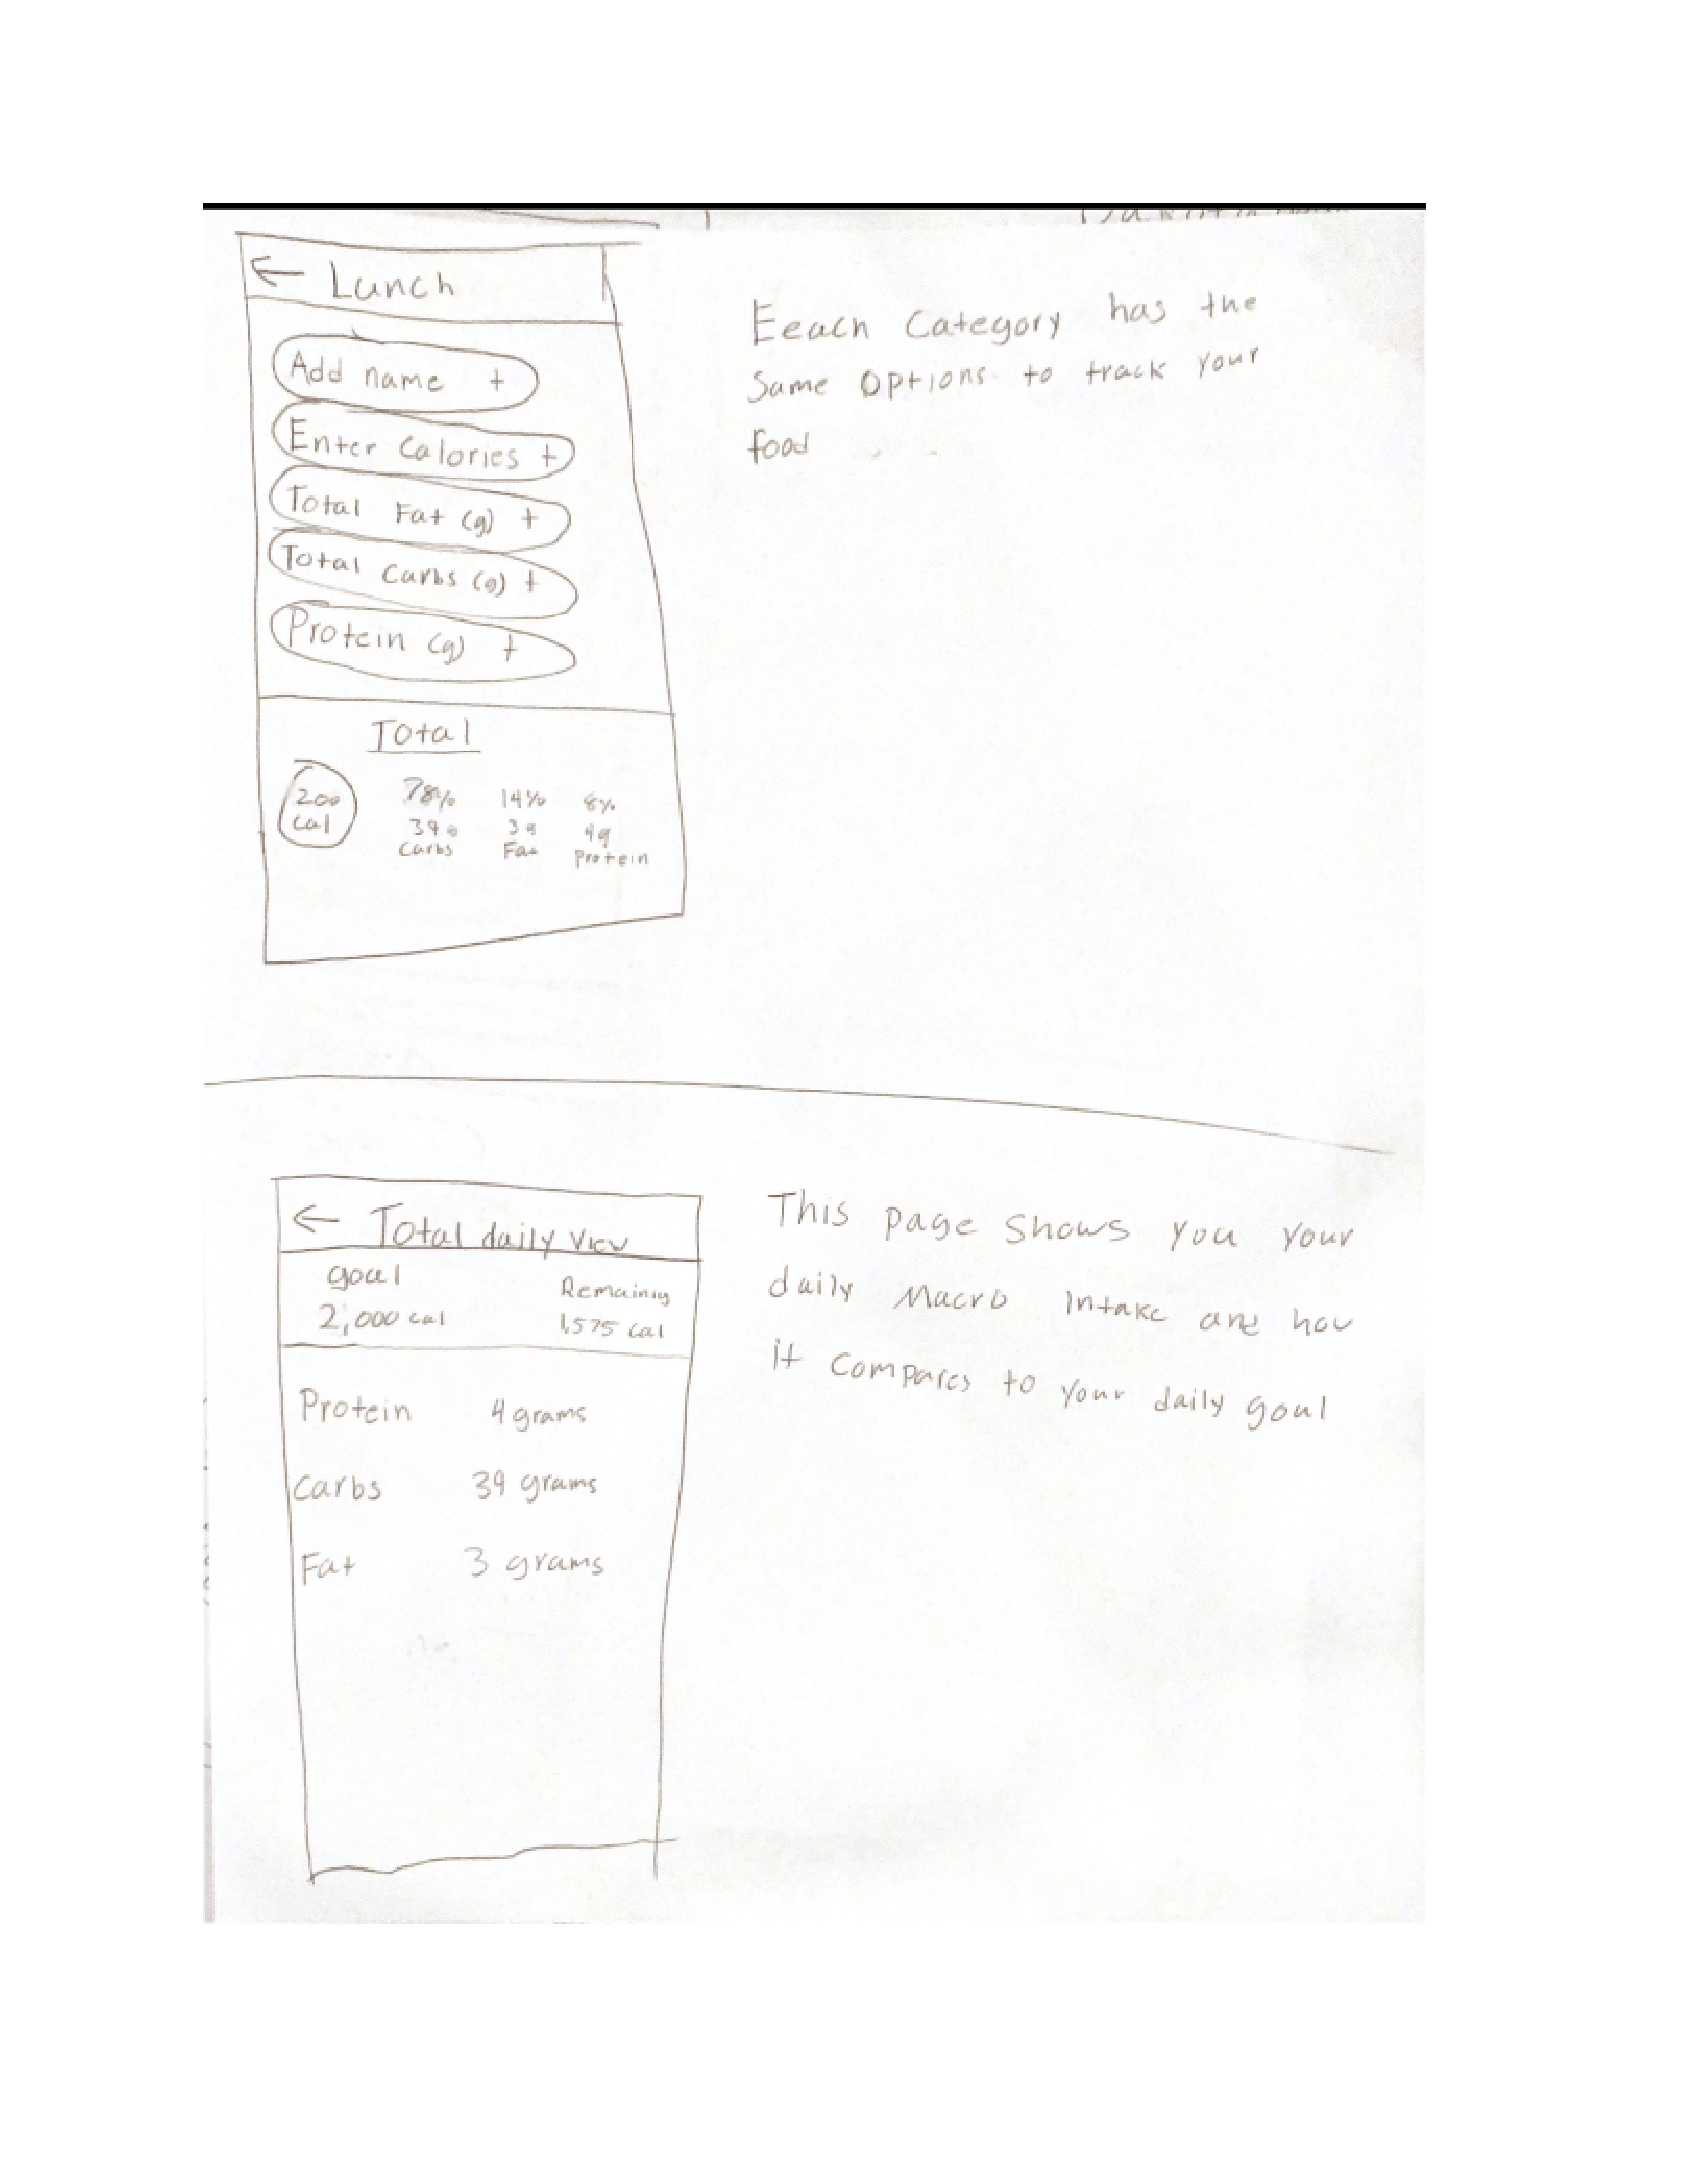 ← Lunch
Add name +
Enter Calories +
Total Fat (g) +
Total Carbs (g) +
Protein (g) +
Total
200 78% 14% 8%
cal 39g 3g 4g
Carbs Fat Protein
Eeach Category has the
Same Options to track your
food
← Total daily View
goal Remaining
2,000 cal 1,575 cal
Protein 4 grams
Carbs 39 grams
Fat 3 grams
This page shows you your
daily Macro Intake and how
it compares to your daily goal